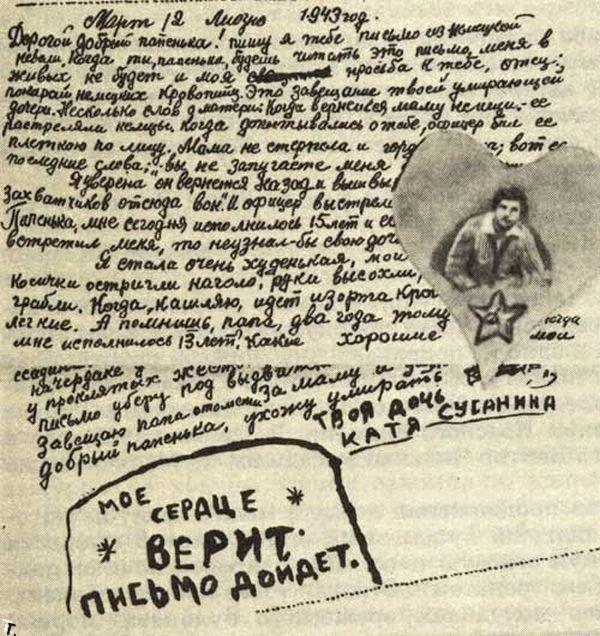 Март 12 Лиозно 1943 год.
Дорогой добрый папенька! пишу я тебе письмо из немецкой
неволи. Когда ты, папенька, будешь читать это письмо, меня в
живых не будет и моя просьба к тебе, отец:
покарай немецких кровопийц. Это завещание твоей умирающей
дочери. Несколько слов о матери. Когда вернешься маму не ищи. ее
растреляли немцы. Когда допытывались о тебе, офицер бил ее
плеткою по лицу. Мама не стерпела и гор вот ее
последние слова: „вы не запугаете меня
Я уверена он вернется назад и вышвы
захватчиков отсюда вон. И офицер выстрел
Папенька, мне сегодня исполнилось 15 лет и ес
встретил меня, то не узнал-бы свою доч
Я стала очень худенькая, мои
косички остригли наголо, руки высохли,
грабли. Когда кашляю, идет изо рта кро
легкие. А помнишь, папа, два года тому когда
мне исполнилось 13 лет. Какие хорошие мои
на чердаке
у проклятых
письмо уберу под
Завещаю папа отомсти за маму и
добрый папенька, ухожу умирать
твоя дочь
Катя Сусанина
МОЕ
СЕРДЦЕ
ВЕРИТ.
ПИСЬМО ДОЙДЕТ.
г.